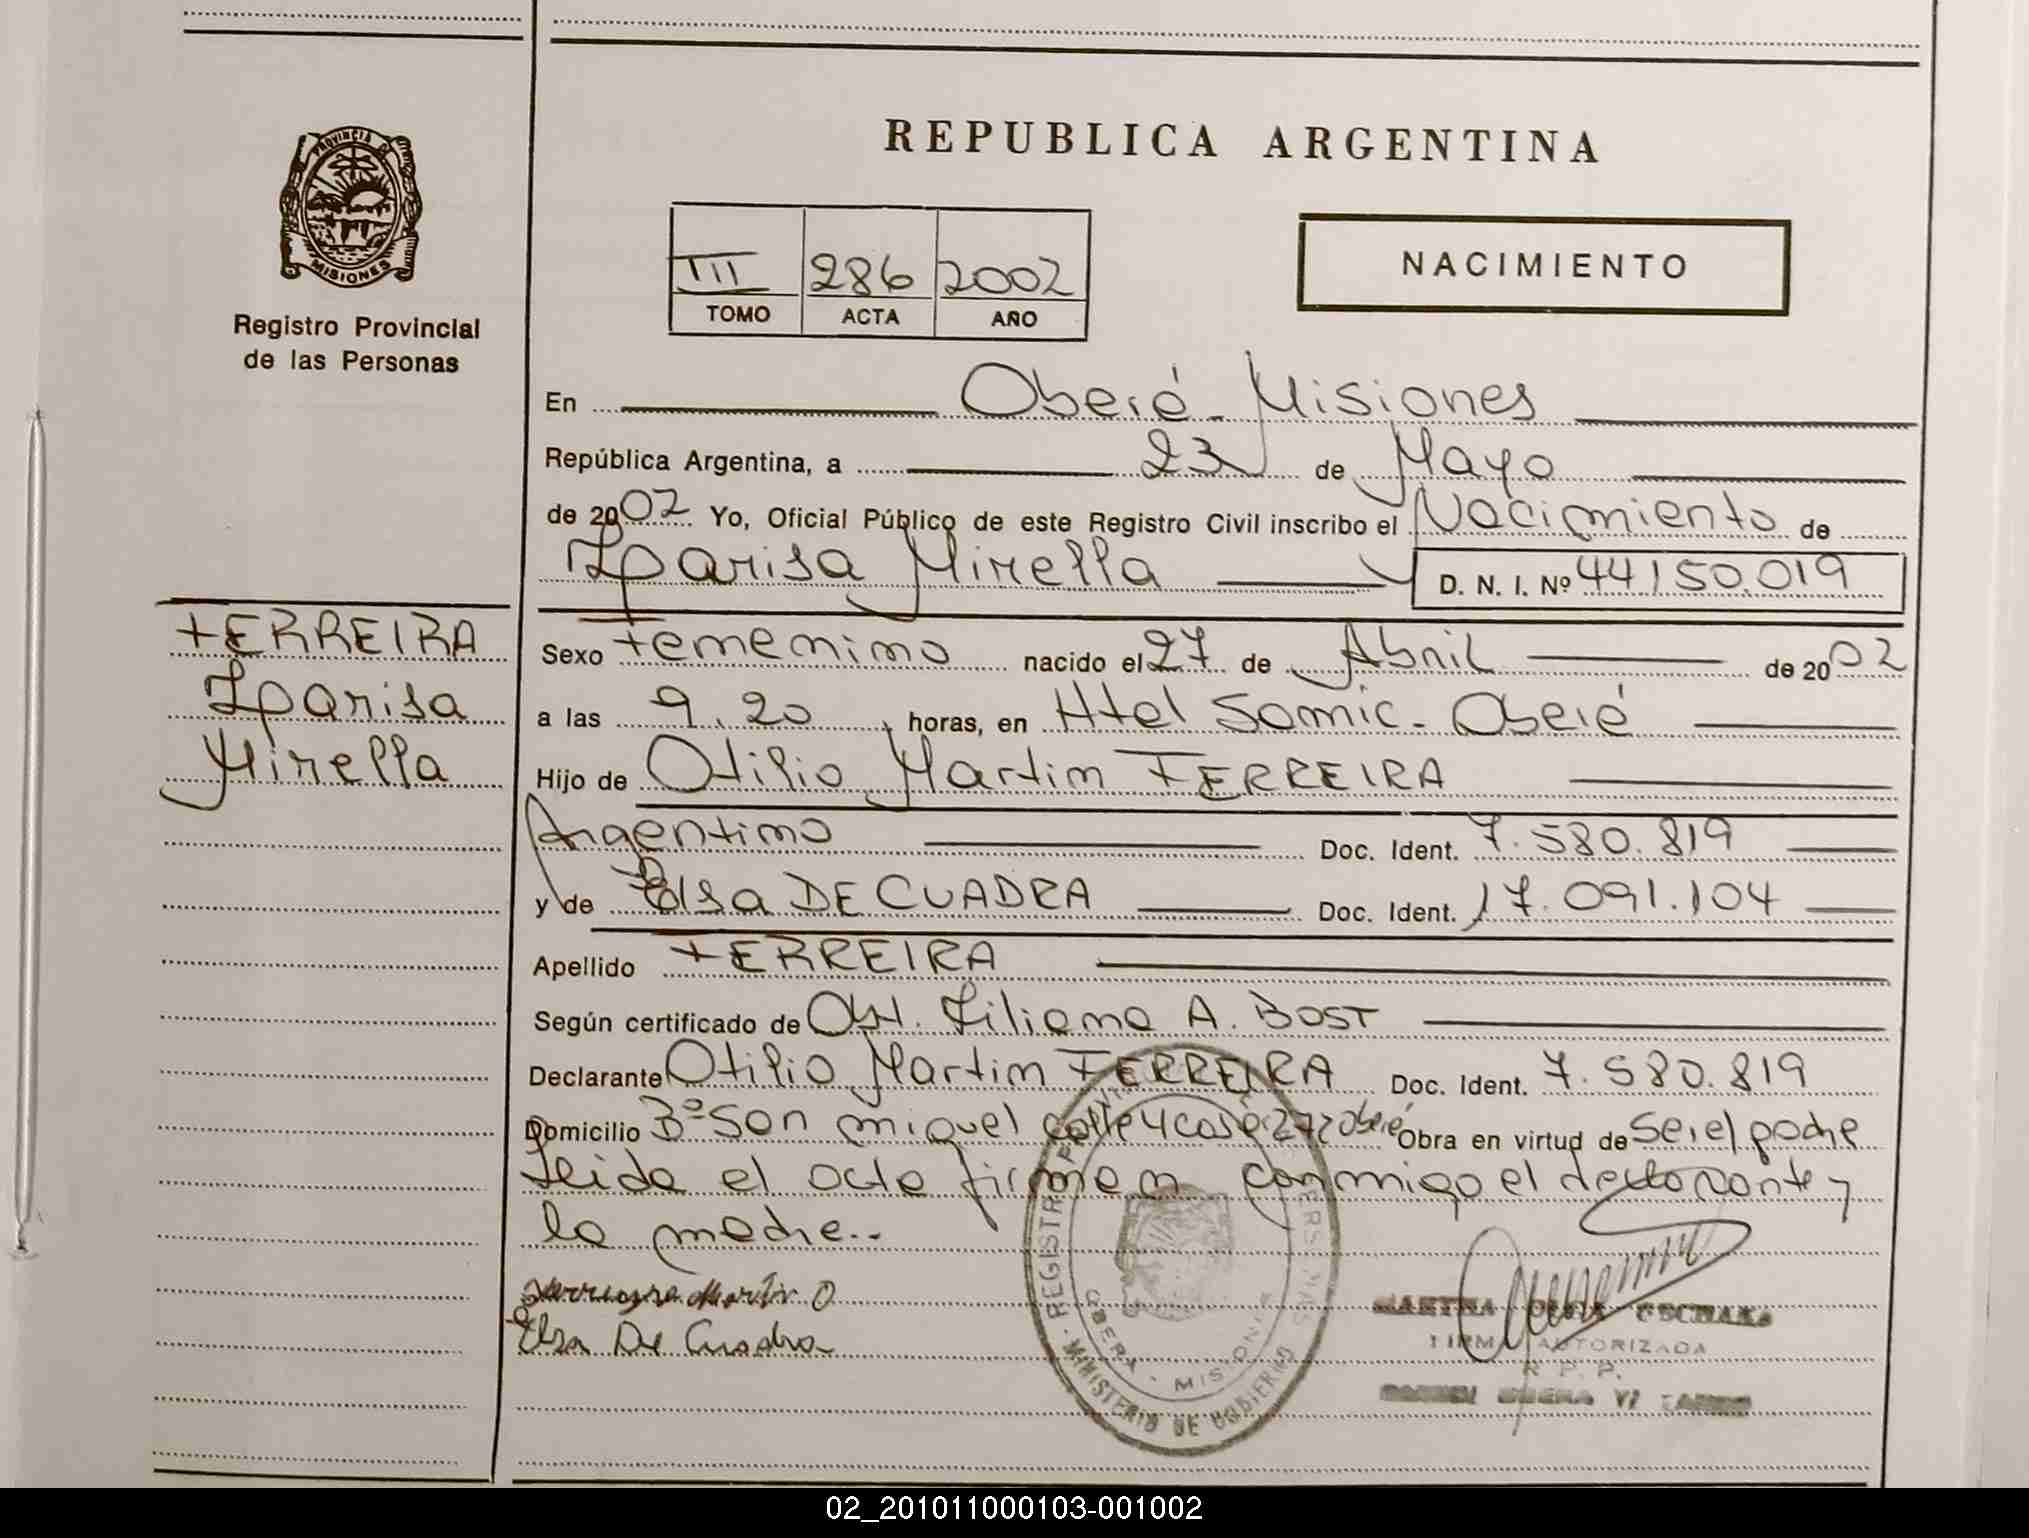 PROVINCIA DE
MISIONES
Registro Provincial
de las Personas
FERREIRA
Larisa
Mirella
REPUBLICA ARGENTINA
III 286 2002
TOMO ACTA AÑO
NACIMIENTO
En Oberá - Misiones
República Argentina, a 23 de Mayo
de 2002 Yo, Oficial Público de este Registro Civil inscribo el Nacimiento de
Larisa Mirella D. N. I. Nº 44150.019
Sexo Femenino nacido el 27 de Abril de 2002
a las 9.20 horas, en Htal Samic - Oberá
Hijo de Otilio Martin FERREIRA
Argentino Doc. Ident. 7.580.819
y de Elsa DE CUADRA Doc. Ident. 17.091.104
Apellido FERREIRA
Según certificado de Obst. Liliana A. BOST
Declarante Otilio Martin FERREIRA Doc. Ident. 7.580.819
Domicilio Bº San Miguel calle 4 casa 272 Oberá Obra en virtud de Ser el padre
Leida el acta firman conmigo el declarante y
la madre..
Martin O
Elsa De Cuadra
REGISTRO MINISTERIO DE GOBIERNO
OBERA - MISIONES
MARTHA
FIRMA AUTORIZADA
R. P. P.
02_201011000103-001002